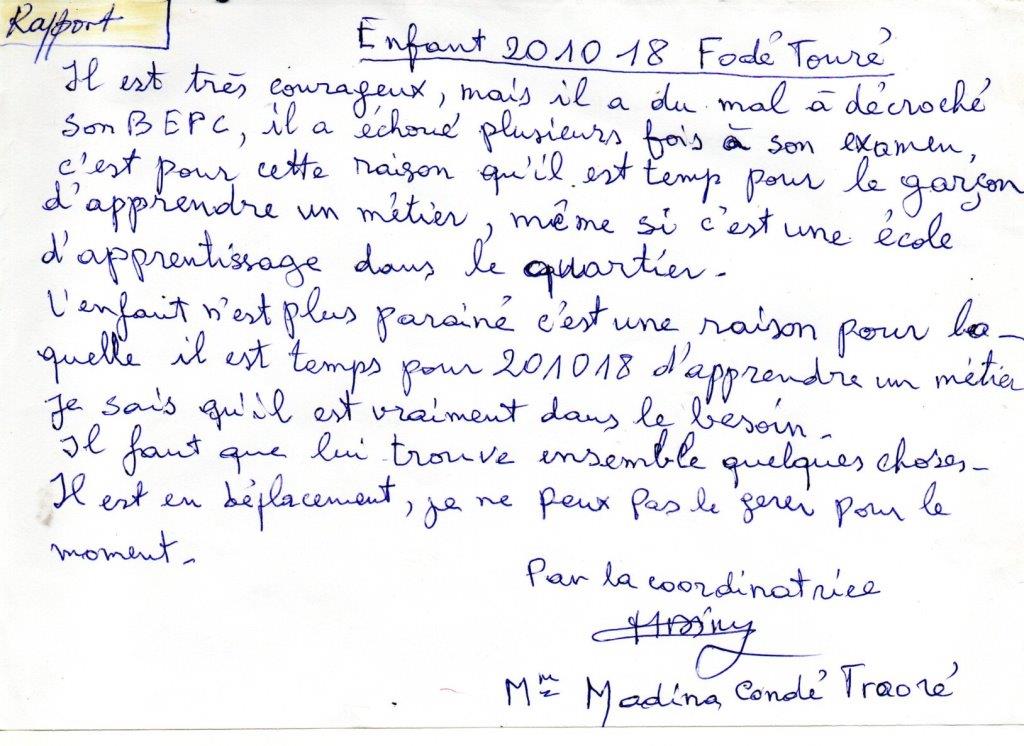 Rapport
Enfant 201018 Fodé Touré
Il est très courageux, mais il a du mal à décroché
son BEPC, il a échoué plusieurs fois à son examen,
c'est pour cette raison qu'il est temp pour le garçon
d'apprendre un métier, même si c'est une école
d'apprentissage dans le quartier.
L'enfant n'est plus parainé c'est une raison pour la-
quelle il est temps pour 201018 d'apprendre un métier
Je sais qu'il est vraiment dans le besoin.
Il faut que lui trouve ensemble quelques choses.
Il est en déplacement, je ne peux pas le gerer pour le
moment.
Par la coordinatrice
Mme Madina Condé Traoré